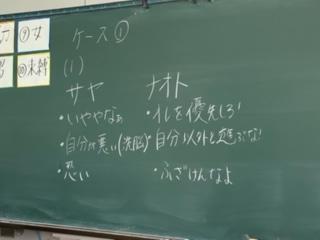 ⑨女
⑩束縛
ケース①
(1)
サヤ ナオト
・いややなぁ ・オレを優先しろ!
・自分が悪い(洗脳) ・自分以外と遊ぶな!
・恐い ・ふざけんなよ